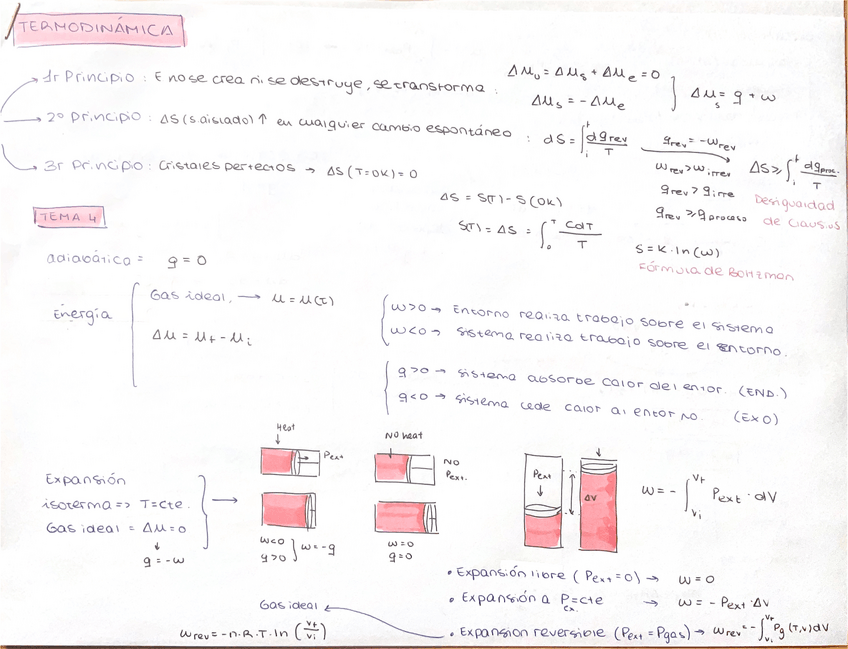 TERMODINÁMICA
1r Principio : E no se crea ni se destruye, se transforma : Δμᵤ = Δμₛ + Δμₑ = 0
Δμₛ = -Δμₑ
Δμₛ = q + w
2º Principio : ΔS (s. aislado) ↑ en cualquier cambio espontáneo : dS = ∫ᵢᶠ dqrev / T
qrev = -wrev
wrev > wirrev
qrev > qirre
qrev ≥ qproceso
ΔS ≥ ∫ᵢᶠ dqproc. / T
Desigualdad
de Clausius
3r Principio : Cristales perfectos → ΔS (T=0K) = 0
ΔS = S(T) - S(0K)
S(T) = ΔS = ∫₀ᵀ CdT / T
S = K · ln(w)
Fórmula de Boltzman
TEMA 4
adiabático = q = 0
Energía
Gas ideal → μ = μ(T)
Δμ = μf - μi
w>0 → Entorno realiza trabajo sobre el sistema
w<0 → sistema realiza trabajo sobre el entorno.
q>0 → sistema absorbe calor del entor. (END.)
q<0 → sistema cede calor al entorno. (EXO)
Expansión
isoterma => T=cte.
Gas ideal = Δμ=0
q = -w
Heat
Pext
w<0
q>0
w=-q
NO heat
NO
Pext.
w=0
q=0
Pext
ΔV
w = - ∫ᵥᵢⱽᶠ Pext · dV
• Expansión libre (Pext=0) → w=0
• Expansión a Pex.=cte → w = - Pext · ΔV
• Expansion reversible (Pext = Pgas) → wrev = - ∫ᵥᵢⱽᶠ Pg (T,V) dV
Gas ideal
wrev = -n.R.T.ln (Vf/Vi)